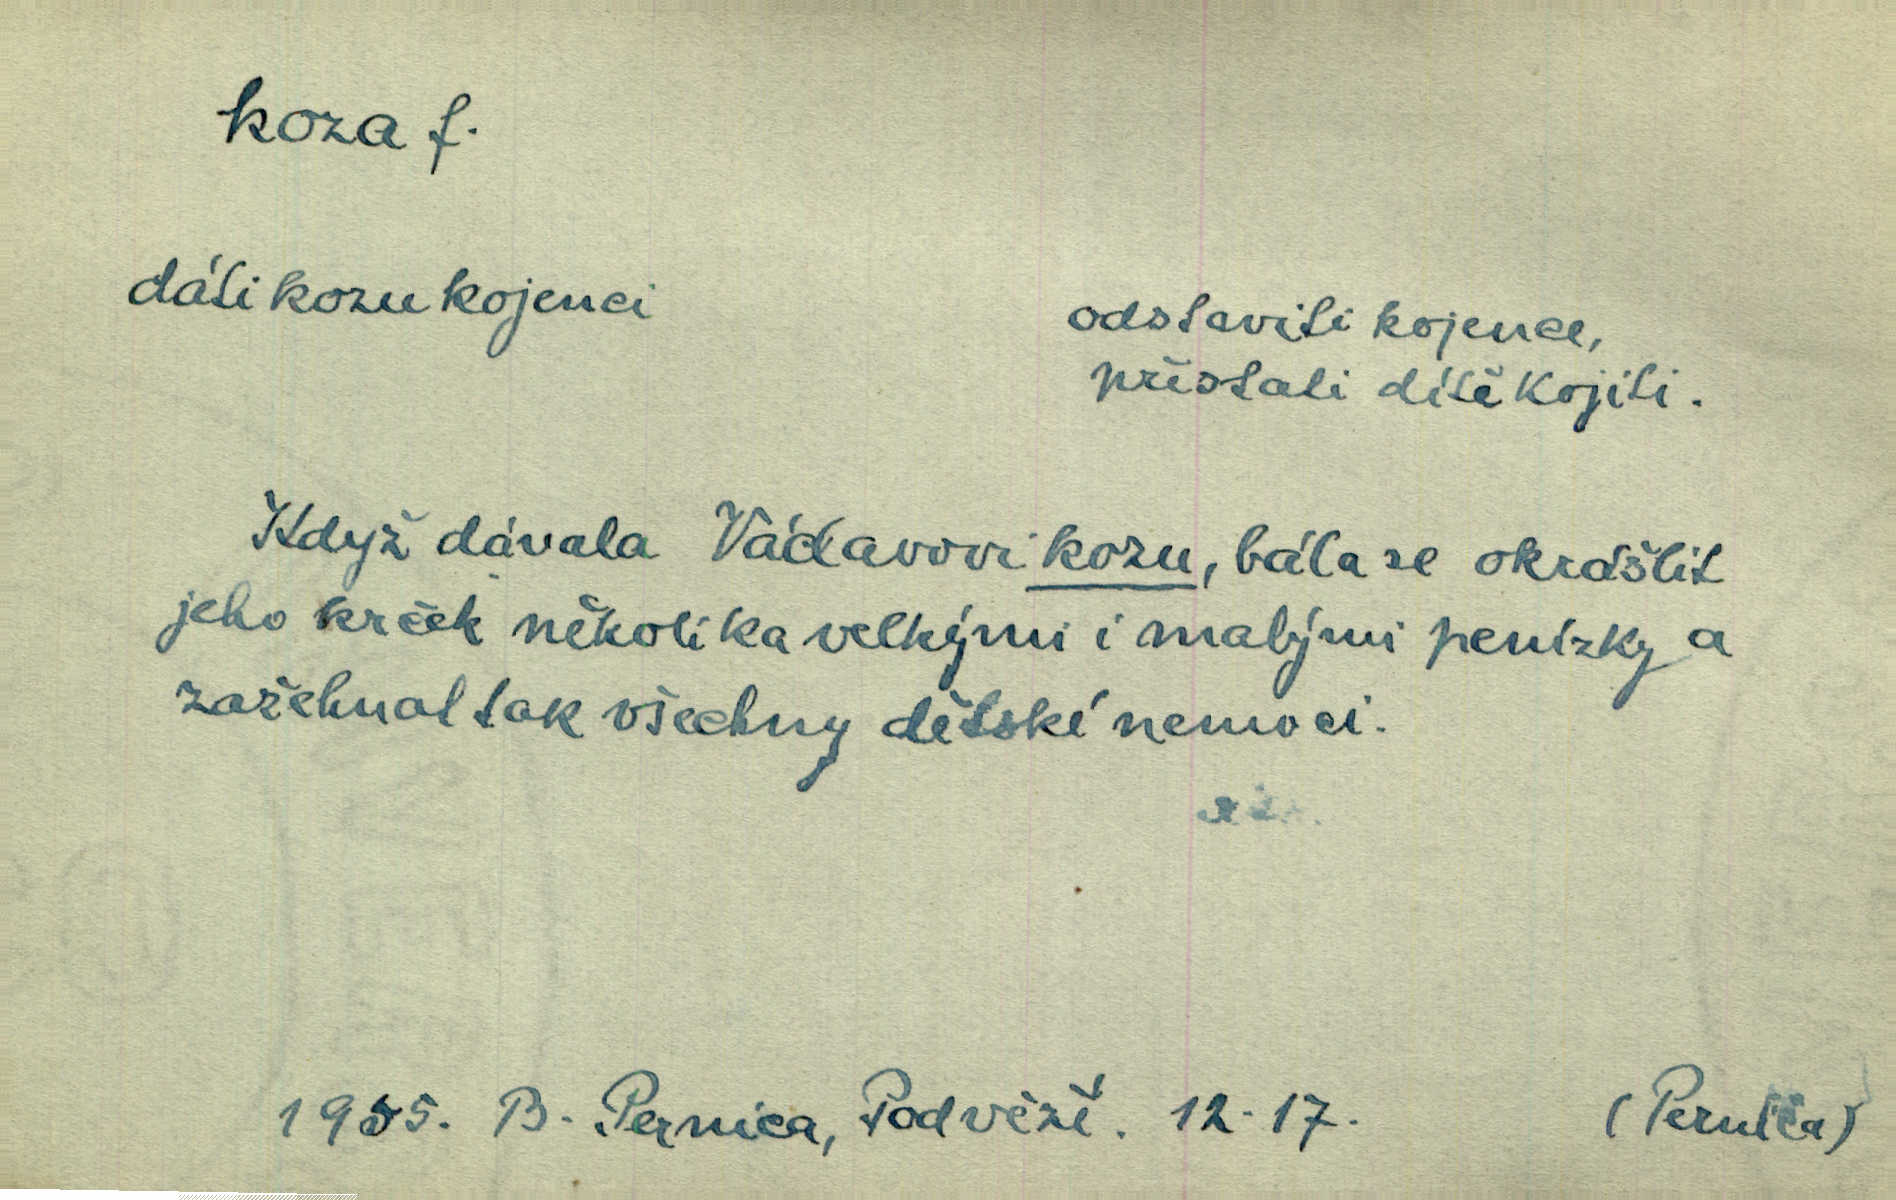 koza f.
dáti kozu kojenci
odstaviti kojence,
přestati dítě kojiti.
Když dávala Václavovi kozu, bála se okrášlit
jeho krček několika velkými i malými penízky a
zažehnat tak všechny dětské nemoci.
1955. B. Pernica, Podvěží. 12-17.
(Pernica)